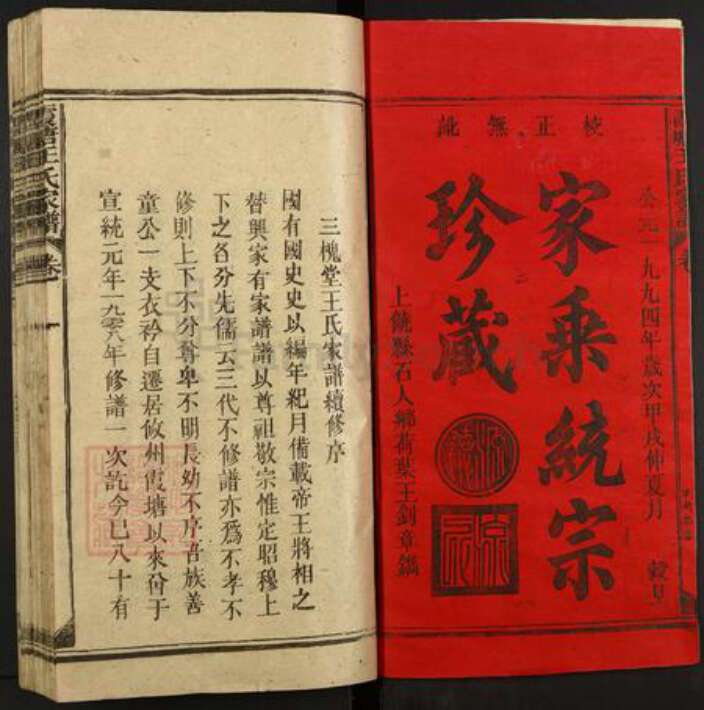 校正無訛
公元一九九四年歲次甲戌仲夏月 穀旦
家乘統宗
珍藏
上饒縣石人鄉荷葉王劍章鐫
三槐堂王氏家譜續修序
國有國史史以編年紀月備載帝王將相之
替興家有家譜譜以尊祖敬宗惟定昭穆上
下之各分先儒云三代不修譜亦為不孝不
修則上下不分尊卑不明長幼不序吾族善
童公一支衣衿自遷居攸州霞塘以來份于
宣統元年一九零八年修譜一次訖今已八十有
王氏家譜 卷一